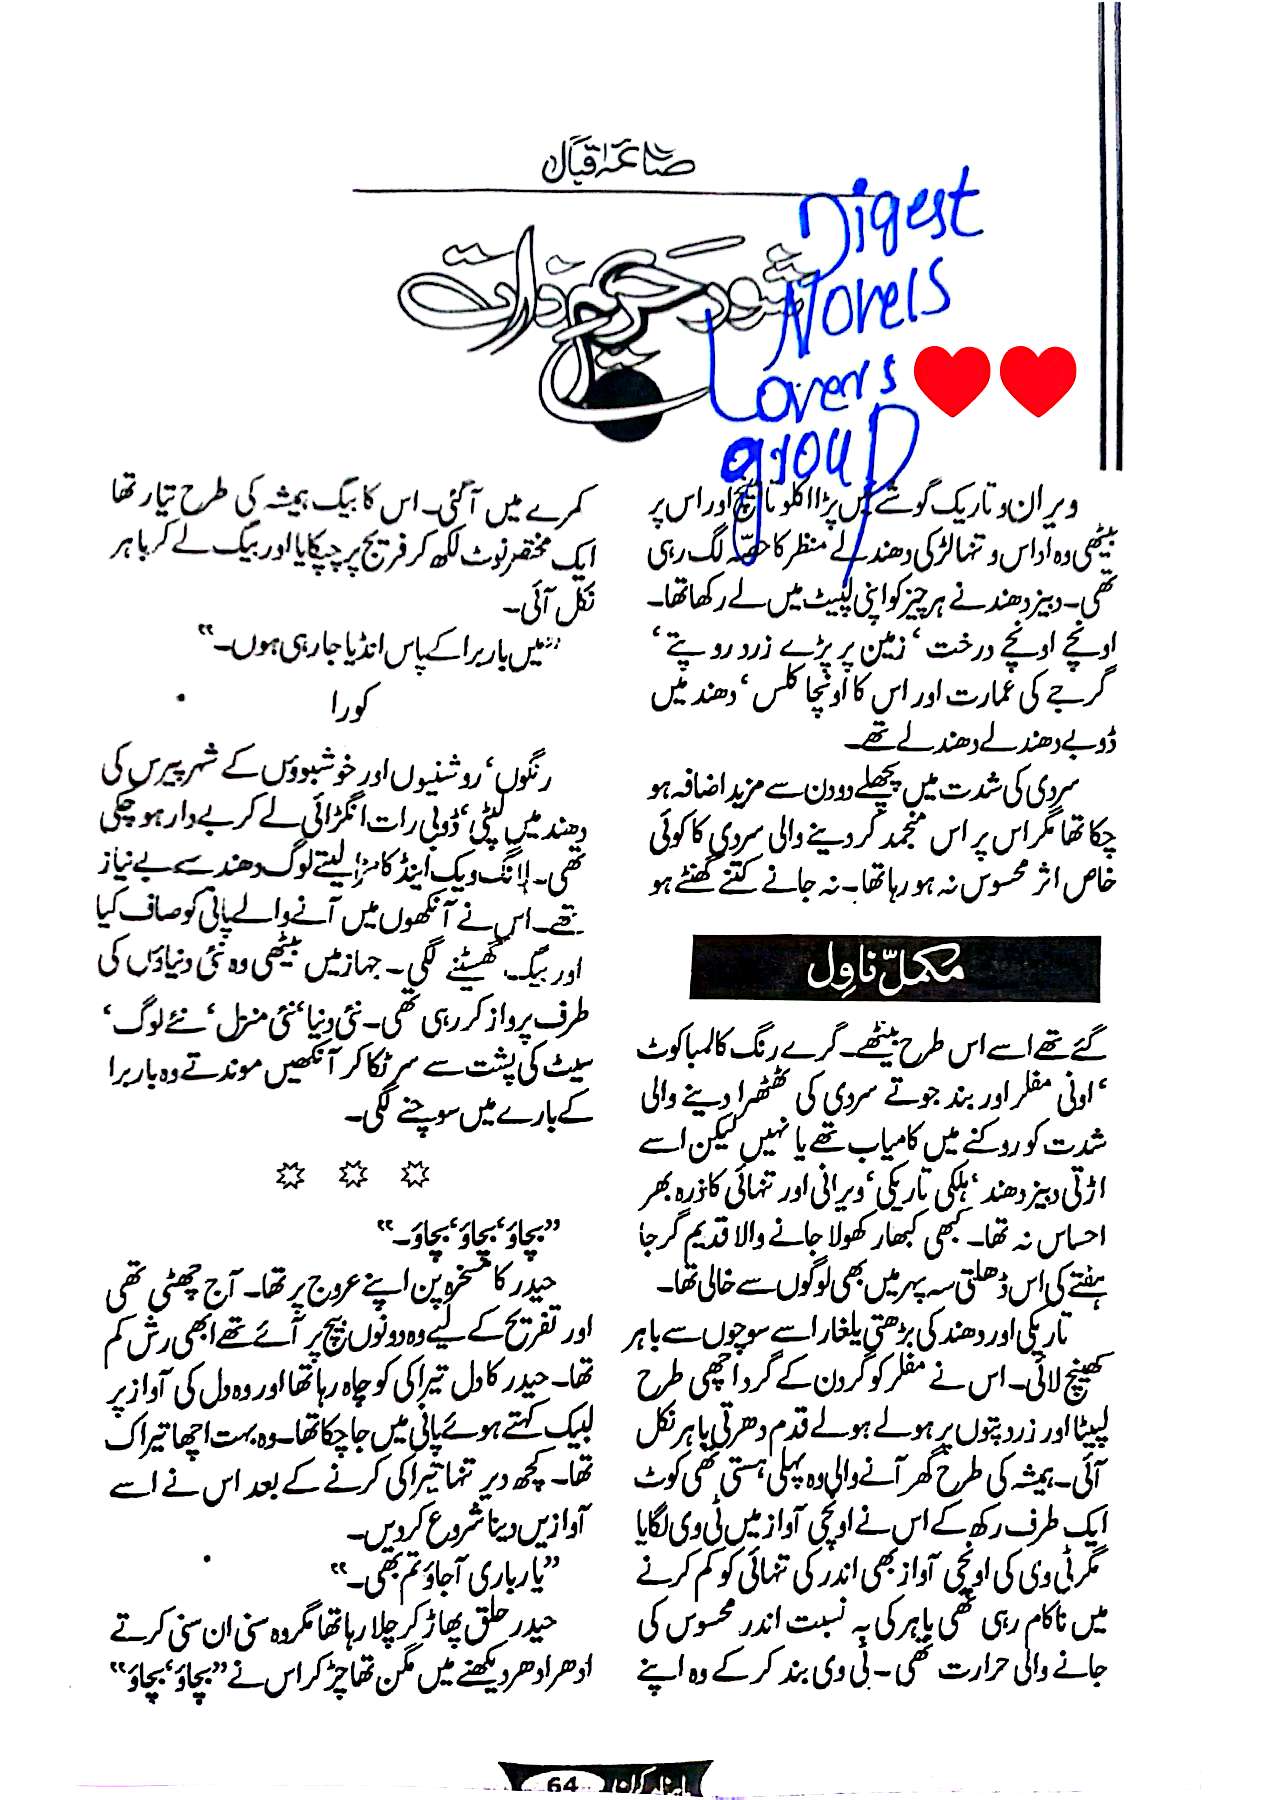 صائمہ اقبال
شور حریم ذات
Digest
Novels
Lovers
group
ویران و تاریک گوشے میں پڑا اکلوتا بینچ اور اس پر
بیٹھی وہ اداس و تنہا لڑکی دھندلے منظر کا حصہ لگ رہی
تھی۔ دبیز دھند نے ہر چیز کو اپنی لپیٹ میں لے رکھا تھا۔
اونچے اونچے درخت ‘ زمین پر پڑے زرد رو پتے ‘
گرجے کی عمارت اور اس کا اونچا کلس ‘ دھند میں
ڈوبے دھندلے دھندلے تھے۔
سردی کی شدت میں پچھلے دو دن سے مزید اضافہ ہو
چکا تھا مگر اس پر اس منجمد کر دینے والی سردی کا کوئی
خاص اثر محسوس نہ ہو رہا تھا۔ نہ جانے کتنے گھنٹے ہو
مکمل ناول
گئے تھے اسے اس طرح بیٹھے۔ گرے رنگ کا لمبا کوٹ
‘ اونی مفلر اور بند جوتے سردی کی ٹھٹھرا دینے والی
شدت کو روکنے میں کامیاب تھے یا نہیں لیکن اسے
اڑتی دبیز دھند ‘ ہلکی تاریکی ‘ ویرانی اور تنہائی کا ذرہ بھر
احساس نہ تھا۔ کبھی کبھار کھولا جانے والا قدیم گرجا
ہفتے کی اس ڈھلتی سہ پہر میں بھی لوگوں سے خالی تھا۔
تاریکی اور دھند کی بڑھتی یلغار اسے سوچوں سے باہر
کھینچ لائی۔ اس نے مفلر کو گردن کے گرد اچھی طرح
لپیٹا اور زرد پتوں پر ہولے ہولے قدم دھرتی باہر نکل
آئی۔ ہمیشہ کی طرح گھر آنے والی وہ پہلی ہستی تھی کوٹ
ایک طرف رکھ کے اس نے اونچی آواز میں ٹی وی لگایا
مگر ٹی وی کی اونچی آواز بھی اندر کی تنہائی کو کم کرنے
میں ناکام رہی تھی باہر کی بہ نسبت اندر محسوس کی
جانے والی حرارت تھی۔ ٹی وی بند کر کے وہ اپنے
کمرے میں آگئی۔ اس کا بیگ ہمیشہ کی طرح تیار تھا
ایک مختصر نوٹ لکھ کر فریج پر چپکایا اور بیگ لے کر باہر
نکل آئی۔
”میں باربرا کے پاس انڈیا جا رہی ہوں۔“
کورا
رنگوں ‘ روشنیوں اور خوشبوؤں کے شہر پیرس کی
دھند میں لپٹی ‘ ڈوبی رات انگڑائی لے کر بے دار ہو چکی
تھی۔ لانگ ویک اینڈ کا مزا لیتے لوگ دھند سے بے نیاز
تھے۔ اس نے آنکھوں میں آنے والے پانی کو صاف کیا
اور بیگ گھسیٹنے لگی۔ جہاز میں بیٹھی وہ نئی دنیاؤں کی
طرف پرواز کر رہی تھی۔ نئی دنیا ‘ نئی منزل ‘ نئے لوگ ‘
سیٹ کی پشت سے سر ٹکا کر آنکھیں موندتے وہ باربرا
کے بارے میں سوچنے لگی۔
”بچاؤ ‘ بچاؤ ‘ بچاؤ۔“
حیدر کا مسخرہ پن اپنے عروج پر تھا۔ آج چھٹی تھی
اور تفریح کے لیے وہ دونوں بیچ پر آئے تھے ابھی رش کم
تھا۔ حیدر کا دل تیراکی کو چاہ رہا تھا اور وہ دل کی آواز پر
لبیک کہتے ہوئے پانی میں جا چکا تھا۔ وہ بہت اچھا تیراک
تھا۔ کچھ دیر تنہا تیراکی کرنے کے بعد اس نے اسے
آوازیں دینا شروع کر دیں۔
”یار باری آجاؤ تم بھی۔“
حیدر حلق پھاڑ کر چلا رہا تھا مگر وہ سنی ان سنی کرتے
ادھر ادھر دیکھنے میں مگن تھا چڑ کر اس نے ”بچاؤ ‘ بچاؤ“
ماہنامہ کرن 64